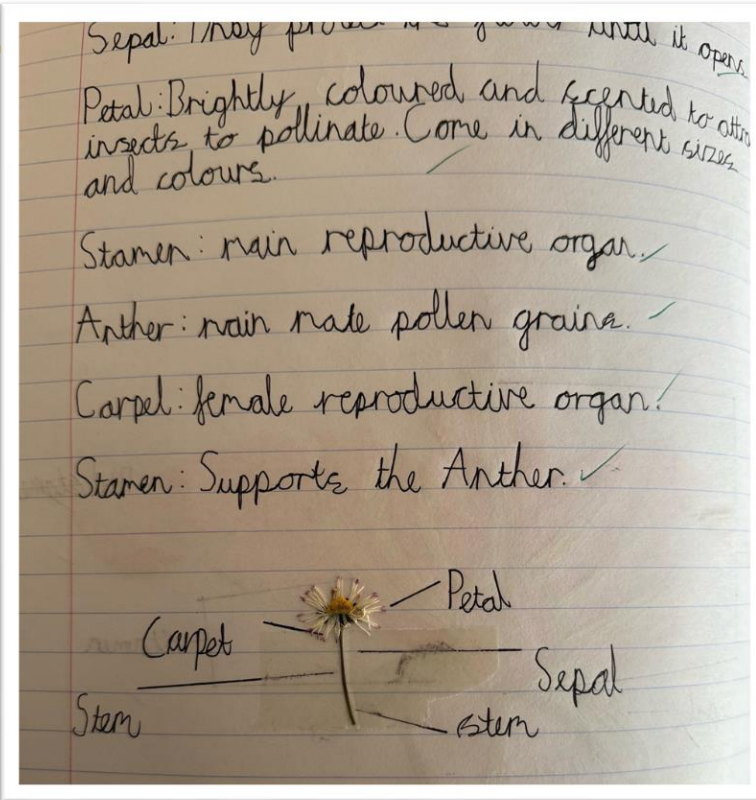 Sepal: They until it opens
Petal: Brightly coloured and scented to
insects to pollinate. Come in different sizes
and colours.
Stamen: main reproductive organ.
Anther: main mate pollen grains.
Carpel: female reproductive organ.
Stamen: Supports the Anther.
Petal
Carpet
Sepal
Stem
stem